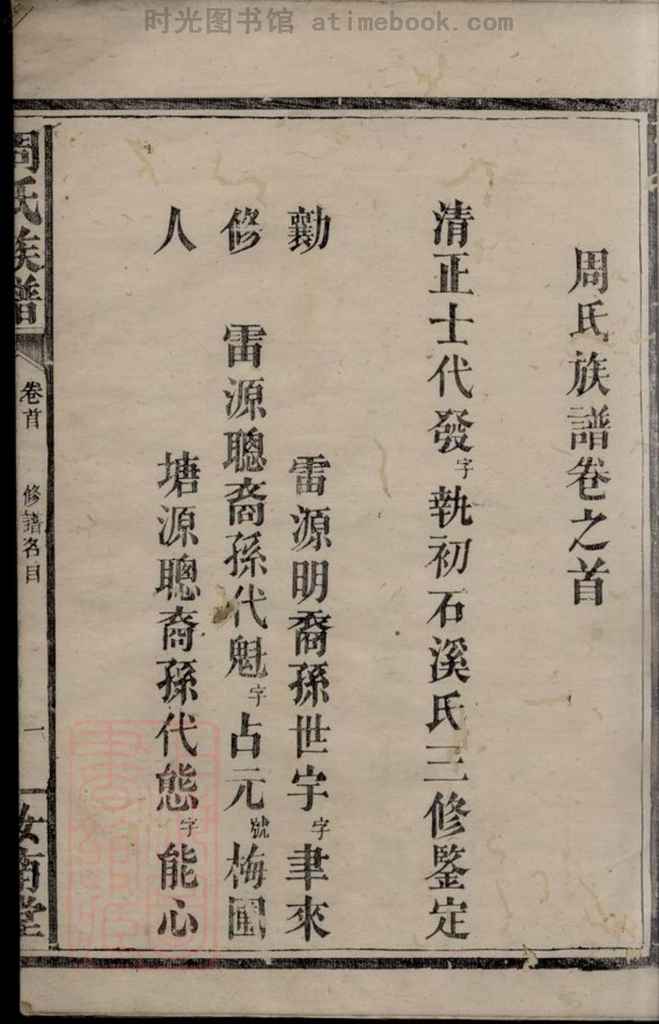 时光图书馆 atimebook.com
周氏族譜卷之首
清正士代發字執初石溪氏三修鑒定
勷
雷源明裔孫世宇字聿來
修
雷源聰裔孫代魁字占元號梅圃
人
塘源聰裔孫代態字能心
周氏族譜
卷首
修譜名目
一
汝南堂